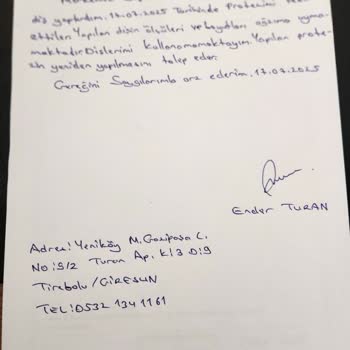 diş yaptırdım. 17.07.2025 Tarihinde Protezimi
ettiler. Yapılan dişin ölçüleri ve boyutları ağzıma uyma-
maktadır. Dişlerimi kullanamamaktayım. Yapılan prote-
zin yeniden yapılmasını talep eder.
Gereğini Saygılarımla arz ederim. 17.07.2025
Ender TURAN
Adres: Yeniköy M. Gazipaşa C.
No: 5/2 Turan Ap. K: 3 D: 9
Tirebolu/GİRESUN
TEL: 0532 134 1161